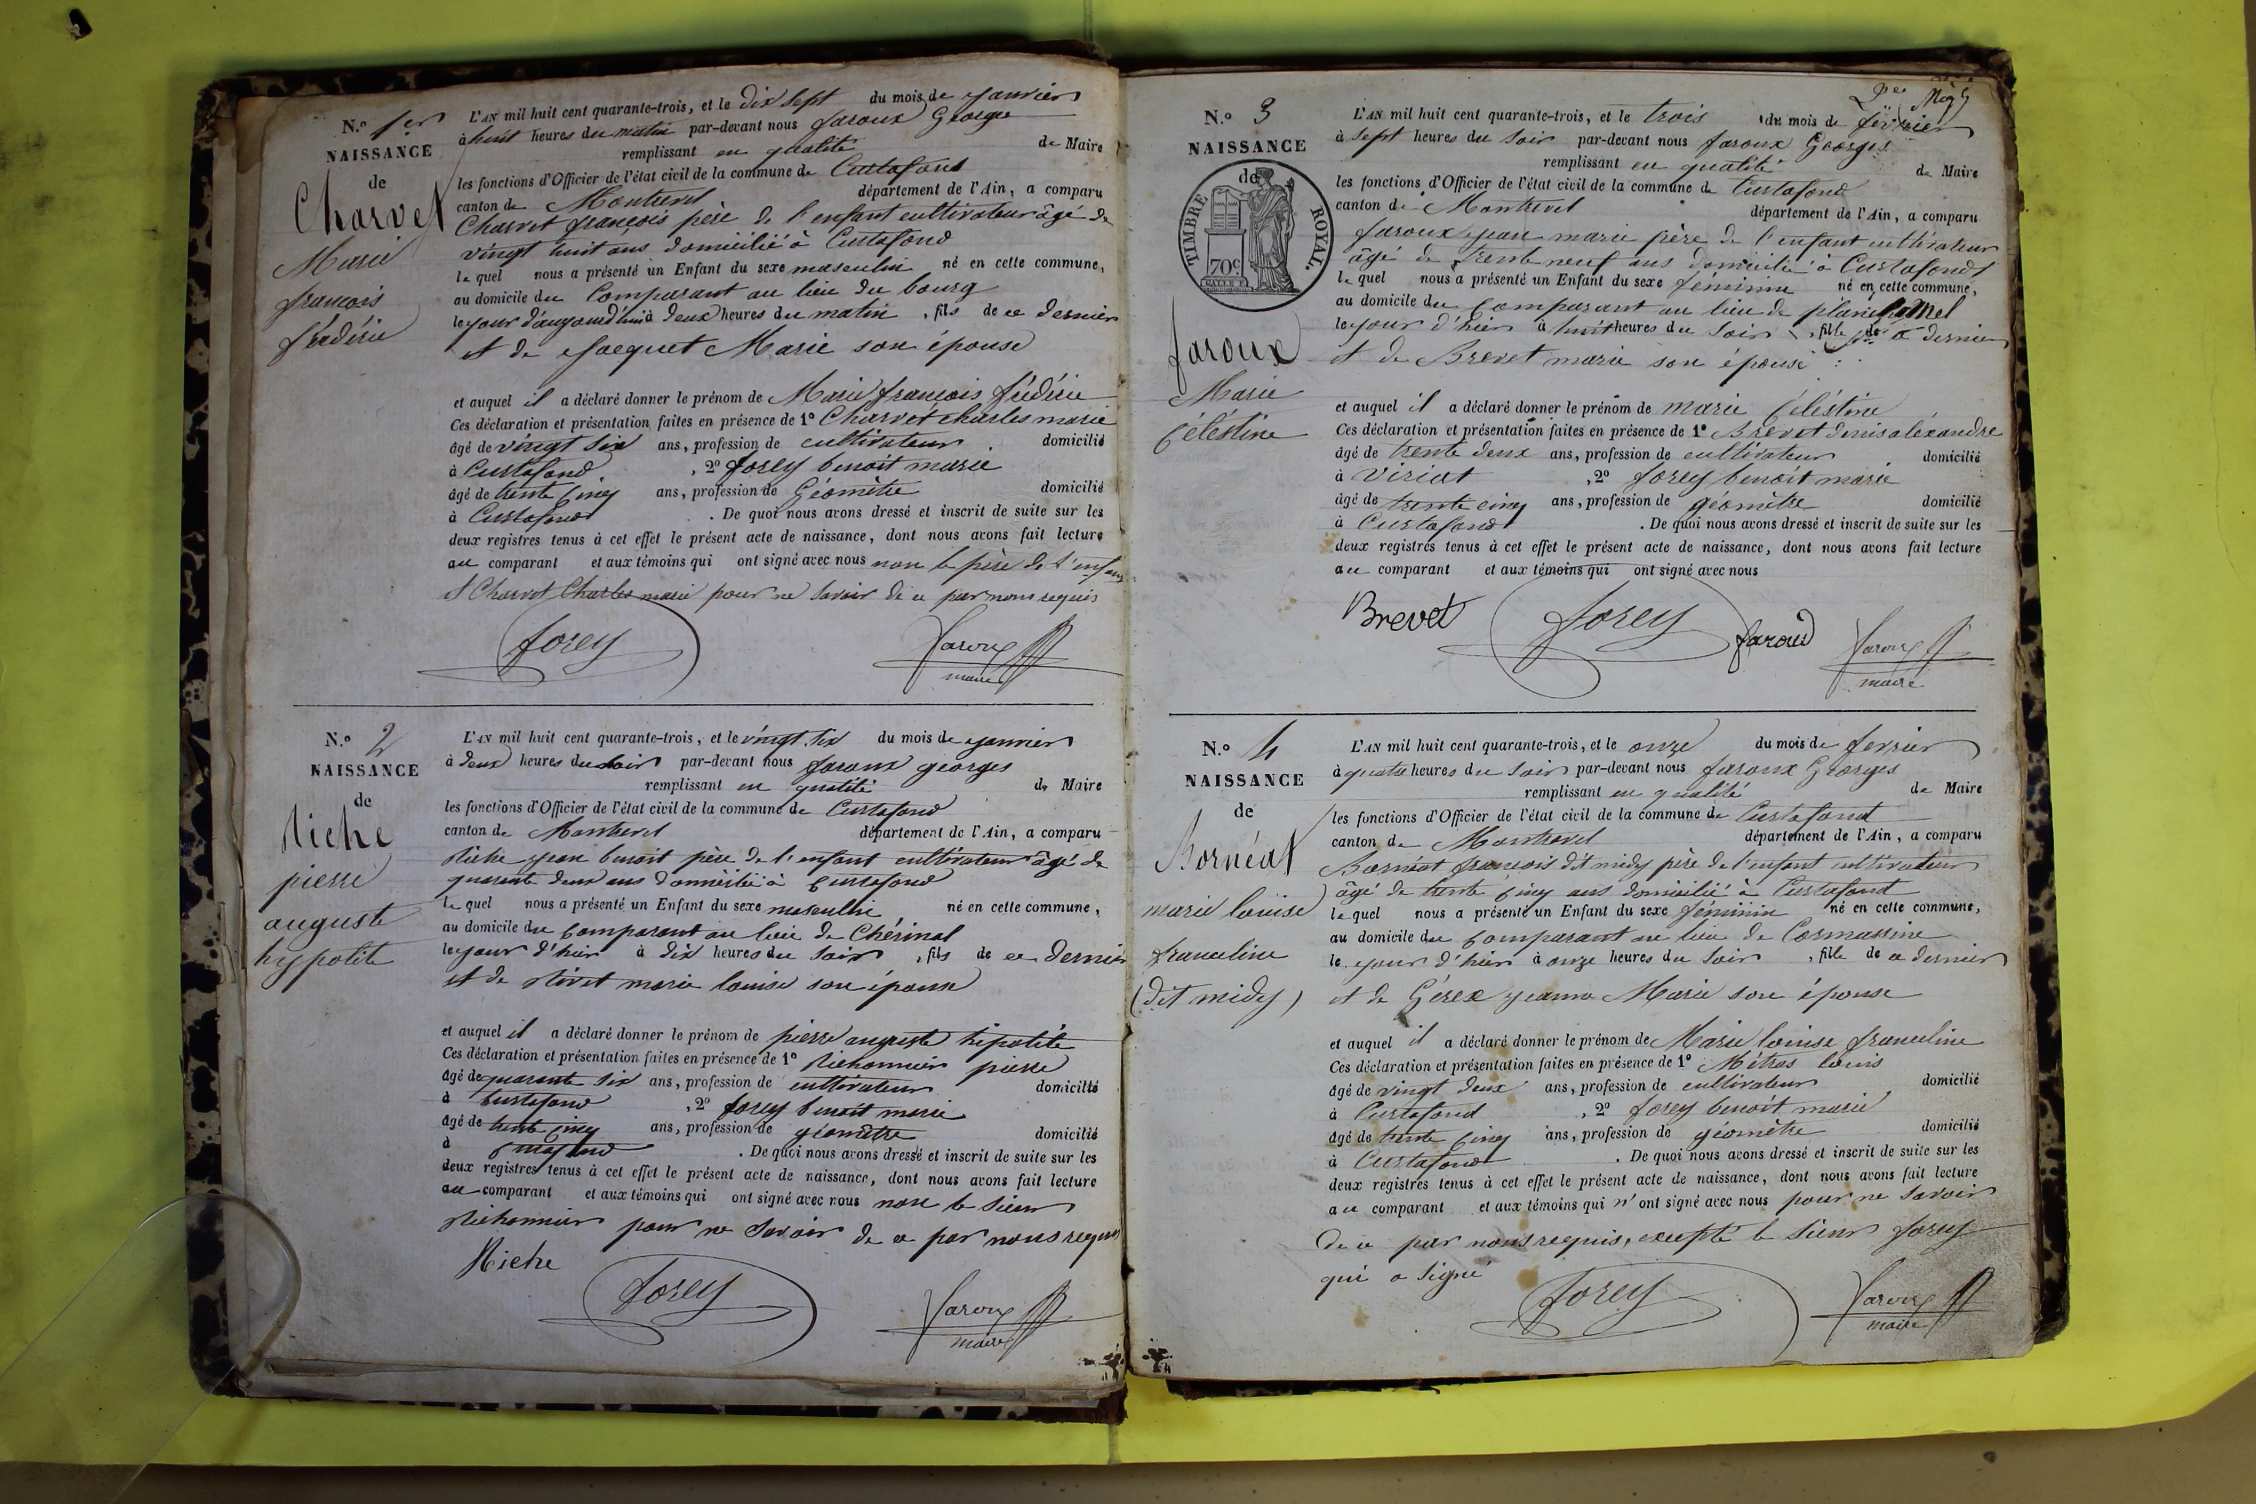 N.o 1er
NAISSANCE
de
Charvet
Marie
françois
frédéric
L'AN mil huit cent quarante-trois, et le dix sept du mois de janvier
à huit heures du matin par-devant nous faroux George
remplissant en qualité de Maire
les fonctions d'Officier de l'état civil de la commune de Curtafond
canton de Montrevel département de l'Ain, a comparu
Charvet françois père de l'enfant cultivateur âgé de
vingt huit ans domicilié à Curtafond
le quel nous a présenté un Enfant du sexe masculin né en cette commune,
au domicile du Comparant au lieu du bourg
le jour d'aujourd'hui à deux heures du matin, fils de ce dernier
et de Jacquet Marie son épouse
et auquel il a déclaré donner le prénom de Marie françois frédéric
Ces déclaration et présentation faites en présence de 1o Charvet charles marie
âgé de vingt six ans, profession de cultivateur domicilié
à Curtafond, 2o forey benoit marie
âgé de trente cinq ans, profession de Géomètre domicilié
à Curtafond. De quoi nous avons dressé et inscrit de suite sur les
deux registres tenus à cet effet le présent acte de naissance, dont nous avons fait lecture
au comparant et aux témoins qui ont signé avec nous non le père de l'enfant
et Charvet Charles marie pour ne savoir de ce par nous requis
forey
faroux
maire
N.o 2
NAISSANCE
de
Riche
pierre
auguste
hypolite
L'AN mil huit cent quarante-trois, et le vingt six du mois de janvier
à deux heures du soir par-devant nous faroux georges
remplissant en qualité de Maire
les fonctions d'Officier de l'état civil de la commune de Curtafond
canton de Montrevel département de l'Ain, a comparu
Riche jean benoit père de l'enfant cultivateur âgé de
quarante deux ans domicilié à Curtafond
le quel nous a présenté un Enfant du sexe masculin né en cette commune,
au domicile du comparant au lieu de Chérinal
le jour d'hier à dix heures du soir, fils de ce dernier
et de Rivet marie louise son épouse
et auquel il a déclaré donner le prénom de pierre auguste hipolite
Ces déclaration et présentation faites en présence de 1o Richonnier pierre
âgé de quarante six ans, profession de cultivateur domicilié
à Curtafond, 2o forey benoit marie
âgé de trente cinq ans, profession de géomètre domicilié
à Curtafond. De quoi nous avons dressé et inscrit de suite sur les
deux registres tenus à cet effet le présent acte de naissance, dont nous avons fait lecture
au comparant et aux témoins qui ont signé avec nous non le sieur
Richonnier pour ne savoir de ce par nous requis
Riche
forey
faroux
maire
N.o 3
NAISSANCE
de
TIMBRE ROYAL.
70c
faroux
Marie
Céléstine
L'AN mil huit cent quarante-trois, et le trois du mois de février
à sept heures du soir par-devant nous faroux Georges
remplissant en qualité de Maire
les fonctions d'Officier de l'état civil de la commune de Curtafond
canton de Montrevel département de l'Ain, a comparu
faroux jean marie père de l'enfant cultivateur
âgé de trente neuf ans domicilié à Curtafond
le quel nous a présenté un Enfant du sexe féminin né en cette commune,
au domicile du comparant au lieu de
le jour d'hier à huit heures du soir, fille de ce dernier
et de Brevet marie son épouse
et auquel il a déclaré donner le prénom de marie Céléstine
Ces déclaration et présentation faites en présence de 1o Brevet denis aléxandre
âgé de trente deux ans, profession de cultivateur domicilié
à Viriat, 2o forey benoit marie
âgé de trente cinq ans, profession de géomètre domicilié
à Curtafond. De quoi nous avons dressé et inscrit de suite sur les
deux registres tenus à cet effet le présent acte de naissance, dont nous avons fait lecture
au comparant et aux témoins qui ont signé avec nous
Brevet
forey
faroux
faroux
maire
N.o 4
NAISSANCE
de
Bornéat
marie louise
franceline
(dit midy)
L'AN mil huit cent quarante-trois, et le onze du mois de fevrier
à quatre heures du soir par-devant nous faroux Georges
remplissant en qualité de Maire
les fonctions d'Officier de l'état civil de la commune de Curtafond
canton de Montrevel département de l'Ain, a comparu
Bornéat françois dit midy père de l'enfant cultivateur
âgé de trente cinq ans domicilié à Curtafond
le quel nous a présenté un Enfant du sexe féminin né en cette commune,
au domicile du comparant au lieu de Cormassine
le jour d'hier à onze heures du soir, fille de ce dernier
et de Gérex jeanne Marie son épouse
et auquel il a déclaré donner le prénom de Marie louise franceline
Ces déclaration et présentation faites en présence de 1o Métras louis
âgé de vingt deux ans, profession de cultivateur domicilié
à Curtafond, 2o forey benoit marie
âgé de trente cinq ans, profession de géomètre domicilié
à Curtafond. De quoi nous avons dressé et inscrit de suite sur les
deux registres tenus à cet effet le présent acte de naissance, dont nous avons fait lecture
au comparant et aux témoins qui n'ont signé avec nous pour ne savoir
de ce par nous requis, excepté le sieur forey
qui a signé
forey
faroux
maire